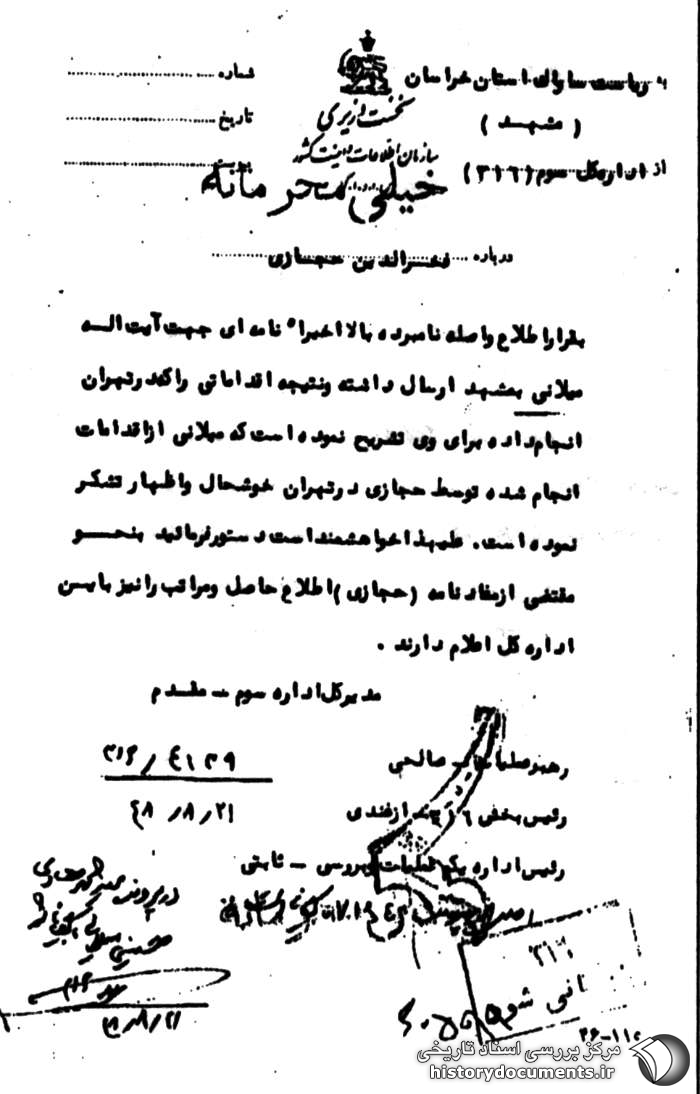 به ریاست ساواک استان خراسان
شماره
نخست وزیری
( مشهد )
تاریخ
سازمان اطلاعات و امنیت کشور
از اداره کل سوم (۳۱۶)
پیوست
خیلی محرمانه
درباره فخرالدین حجازی
بقرار اطلاع واصله نامبرده بالا اخیرا" نامه ای جهت آیت اله
میلانی بمشهد ارسال داشته ونتیجه اقداماتی راکه درتهران
انجام داده برای وی تشریح نموده است که میلانی ازاقدامات
انجام شده توسط حجازی درتهران خوشحال واظهار تشکر
نموده است. علیهذا خواهشمند است دستورفرمائید بنحو
مقتضی ازمفاد نامه (حجازی) اطلاع حاصل ومراتب رانیز باین
اداره کل اعلام دارند .
مدیرکل اداره سوم - مقدم
رهبر عملیات - صالحی
۳۱۶/۴۱۳۹
رئیس بخش ۳۱۶ - ازغندی
۴۸/۸/۲۱
رئیس اداره یکم عملیات وبررسی - ثابتی
در پرونده
۳۱۶
۲۱/۸/
۳۱۲
۲۶-۱۱۰
مرکز بررسی اسناد تاریخی
historydocuments.ir